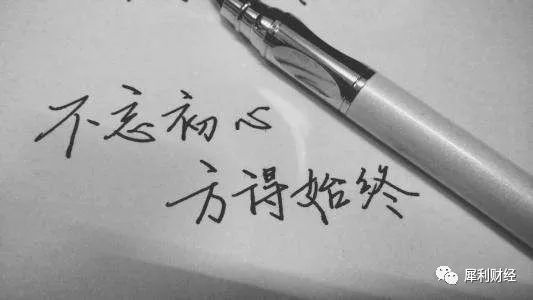 不忘初心
方得始终
犀利财经